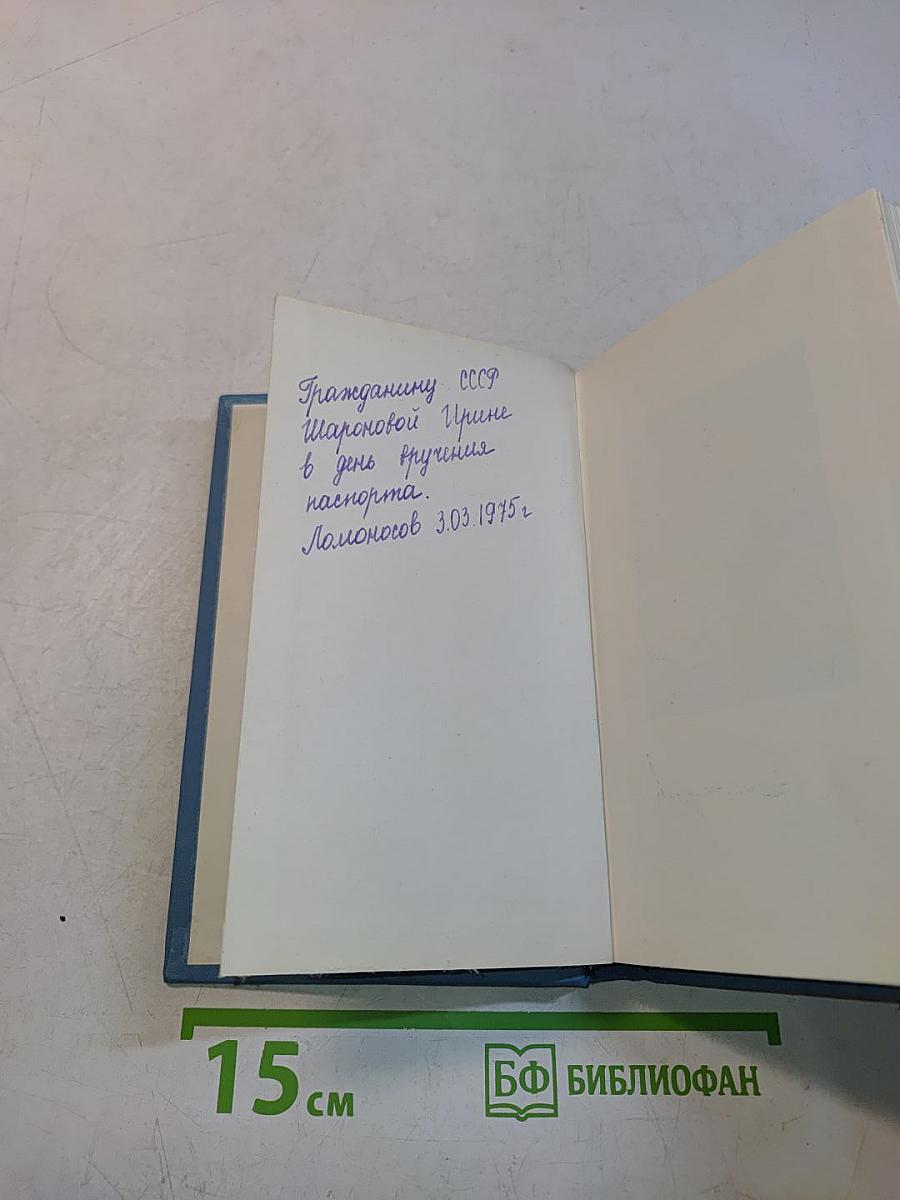 Гражданину СССР
Шароновой Ирине
в день вручения
паспорта.
Ломоносов 3.03.1975г
15 см
БФ БИБЛИОФАН